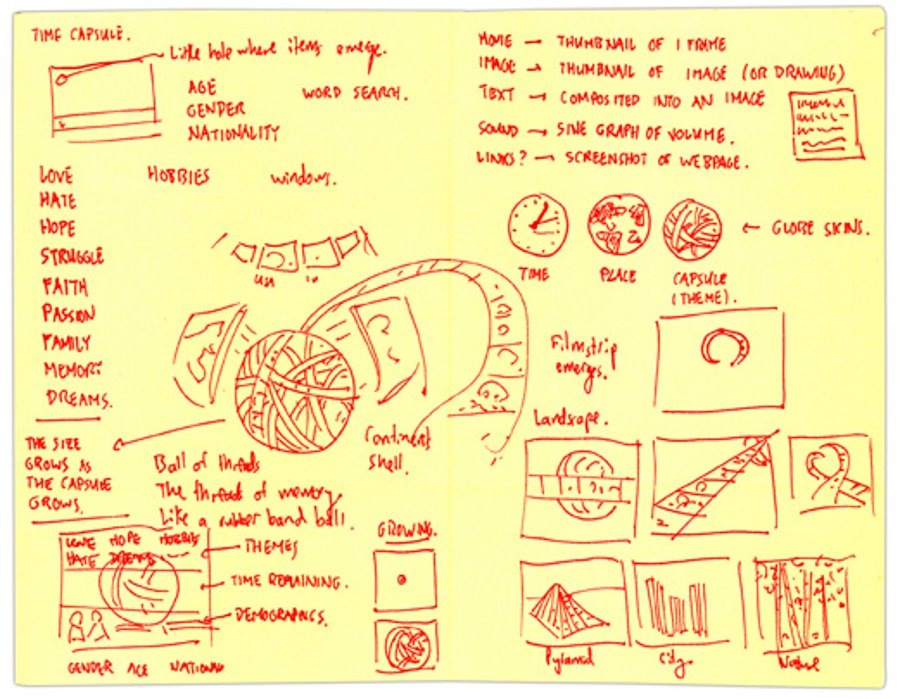 TIME CAPSULE.
Little hole where items emerge.
AGE
GENDER
NATIONALITY
WORD SEARCH.
LOVE
HATE
HOPE
STRUGGLE
FAITH
PASSION
FAMILY
MEMORY
DREAMS.
HOBBIES
windows.
USA
THE SIZE
GROWS AS
THE CAPSULE
GROWS.
Continent
Shell.
Ball of threads
The threads of memory
Like a rubber band ball.
LOVE HOPE HOBBIES
HATE DREAMS
THEMES
TIME REMAINING.
DEMOGRAPHICS.
GENDER AGE NATIONA
GROWING.
MOVIE → THUMBNAIL OF 1 FRAME
IMAGE → THUMBNAIL OF IMAGE (OR DRAWING)
TEXT → COMPOSITED INTO AN IMAGE
SOUND → SINE GRAPH OF VOLUME.
LINKS? → SCREENSHOT OF WEBPAGE.
← GLOBE SKINS.
TIME
PLACE
CAPSULE
(THEME).
Filmstrip
emerges.
Landscape.
Pyramid
City.
Nature